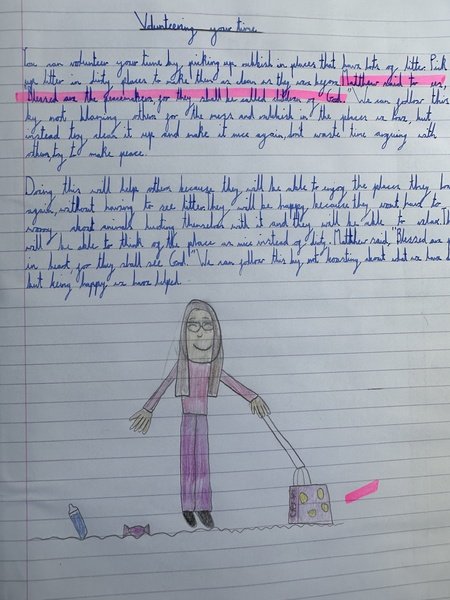 Volunteering your time
You can volunteer your time by, picking up rubbish in places that have lots of litter. Pick
up litter in dirty places to make them as clean as they was before. Matthew said to us,
"Blessed are the peacemakers for they shall be called children of God." We can follow this
by not blaming others for the mess and rubbish in the places we love, but
instead try clear it up and make it nice again, dont waste time arguing with
others, try to make peace.
Doing this will help others because they will be able to enjoy the places they lov
again, without having to see litter. They will be happy, because they wont have to
worry about animals hurting themselves with it and they will be able to relax. Th
will be able to think of the place as nice instead of dirty. Matthew said, "Blessed are p
in heart, for they shall see God." We can follow this by not boasting about what we have d
but being happy we have helped.